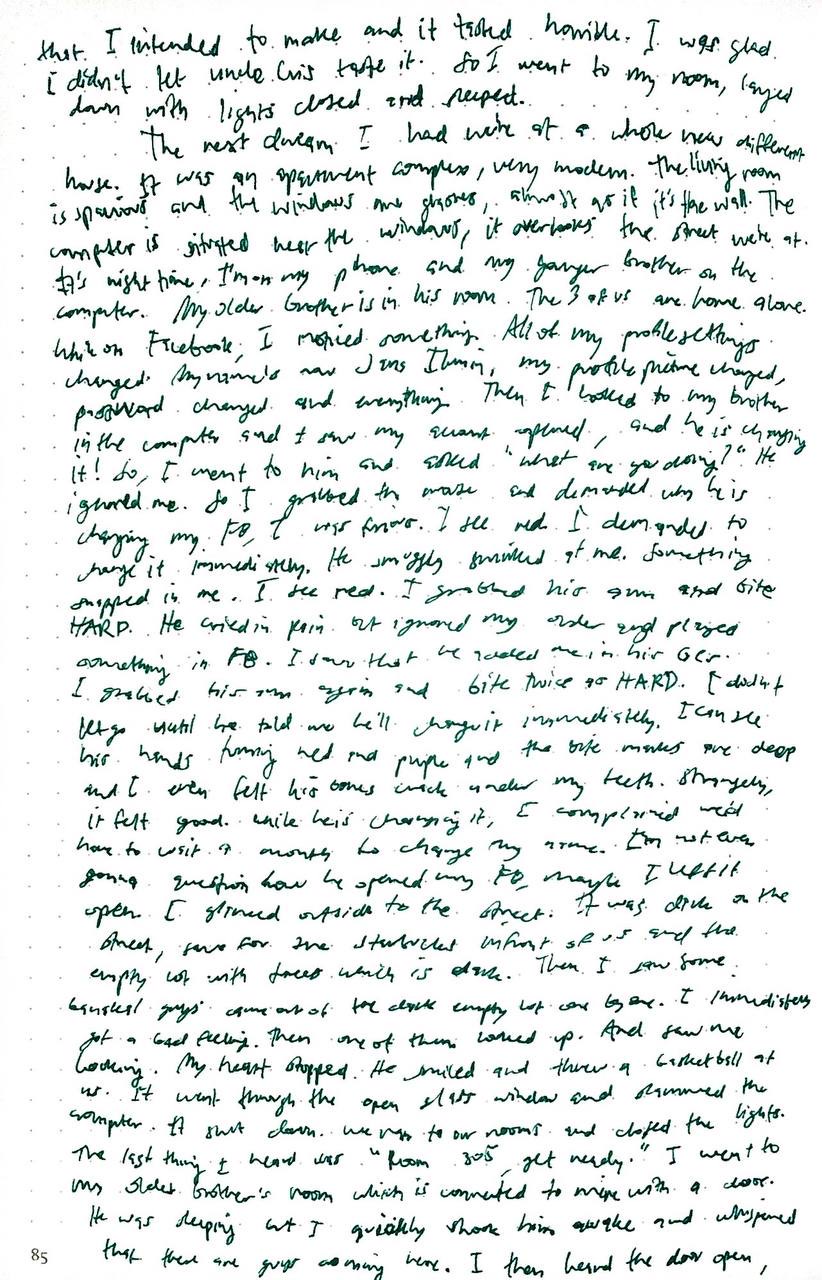 that I intended to make and it tasted horrible. I was glad
I didn't let uncle Cris taste it. So I went to my room, layed
down with lights closed and sleeped.
The next dream I had we're at a whole new different
house. It was an apartment complex, very modern. The living room
is spacious and the windows are glasses, almost as if it's the wall. The
computer is situated near the windows, it overlooks the street we're at.
It's night time, I'm on my phone and my younger brother on the
computer. My older brother is in his room. The 3 of us are home alone.
While on Facebook, I noticed something. All of my profile settings
changed. My name's now, my profile picture changed,
password changed and everything. Then I looked to my brother
in the computer and I saw my account opened, and he is changing
it! So, I went to him and asked "what are you doing?" He
ignored me. So I grabbed the mouse and demanded why he is
changing my FB, I was furious. I see red. I demanded to
change it immediately. He smuggly smirked at me. Something
snapped in me. I see red. I grabbed his arm and bite
HARD. He cried in pain but ignored my order and played
something in FB. I saw that he added me in his GCs.
I grabbed his arm again and bite twice as HARD. I doidn't
let go until he told me he'll change it immediately. I can see
his hands turning red and purple and the bite marks are deep
and I even felt his bones crack under my teeth. Strangely,
it felt good. While he's changing it, I complained we'd
have to wait a month to change my name. I'm not even
gonna question how he opened my FB, maybe I left it
open. I glimced outside to the street. It was dark on the
street, save for the starbucks infront of us and the
empty lot with trees which is dark. Then I saw some
guys came out of the dark empty lot one by one. I immediately
got a bad feeling. Then one of them looked up. And saw me
looking. My heart stopped. He smiled and threw a basketball at
us. It went through the open glass window and slammed the
computer. It shut down. We ran to our rooms and closed the lights.
The last thing I heard was "Room 305, get ready." I went to
my older brother's room which is connected to mine with a door.
He was sleeping but I quickly shook him awake and whispered
that there are guys coming here. I then heard the door open,
85